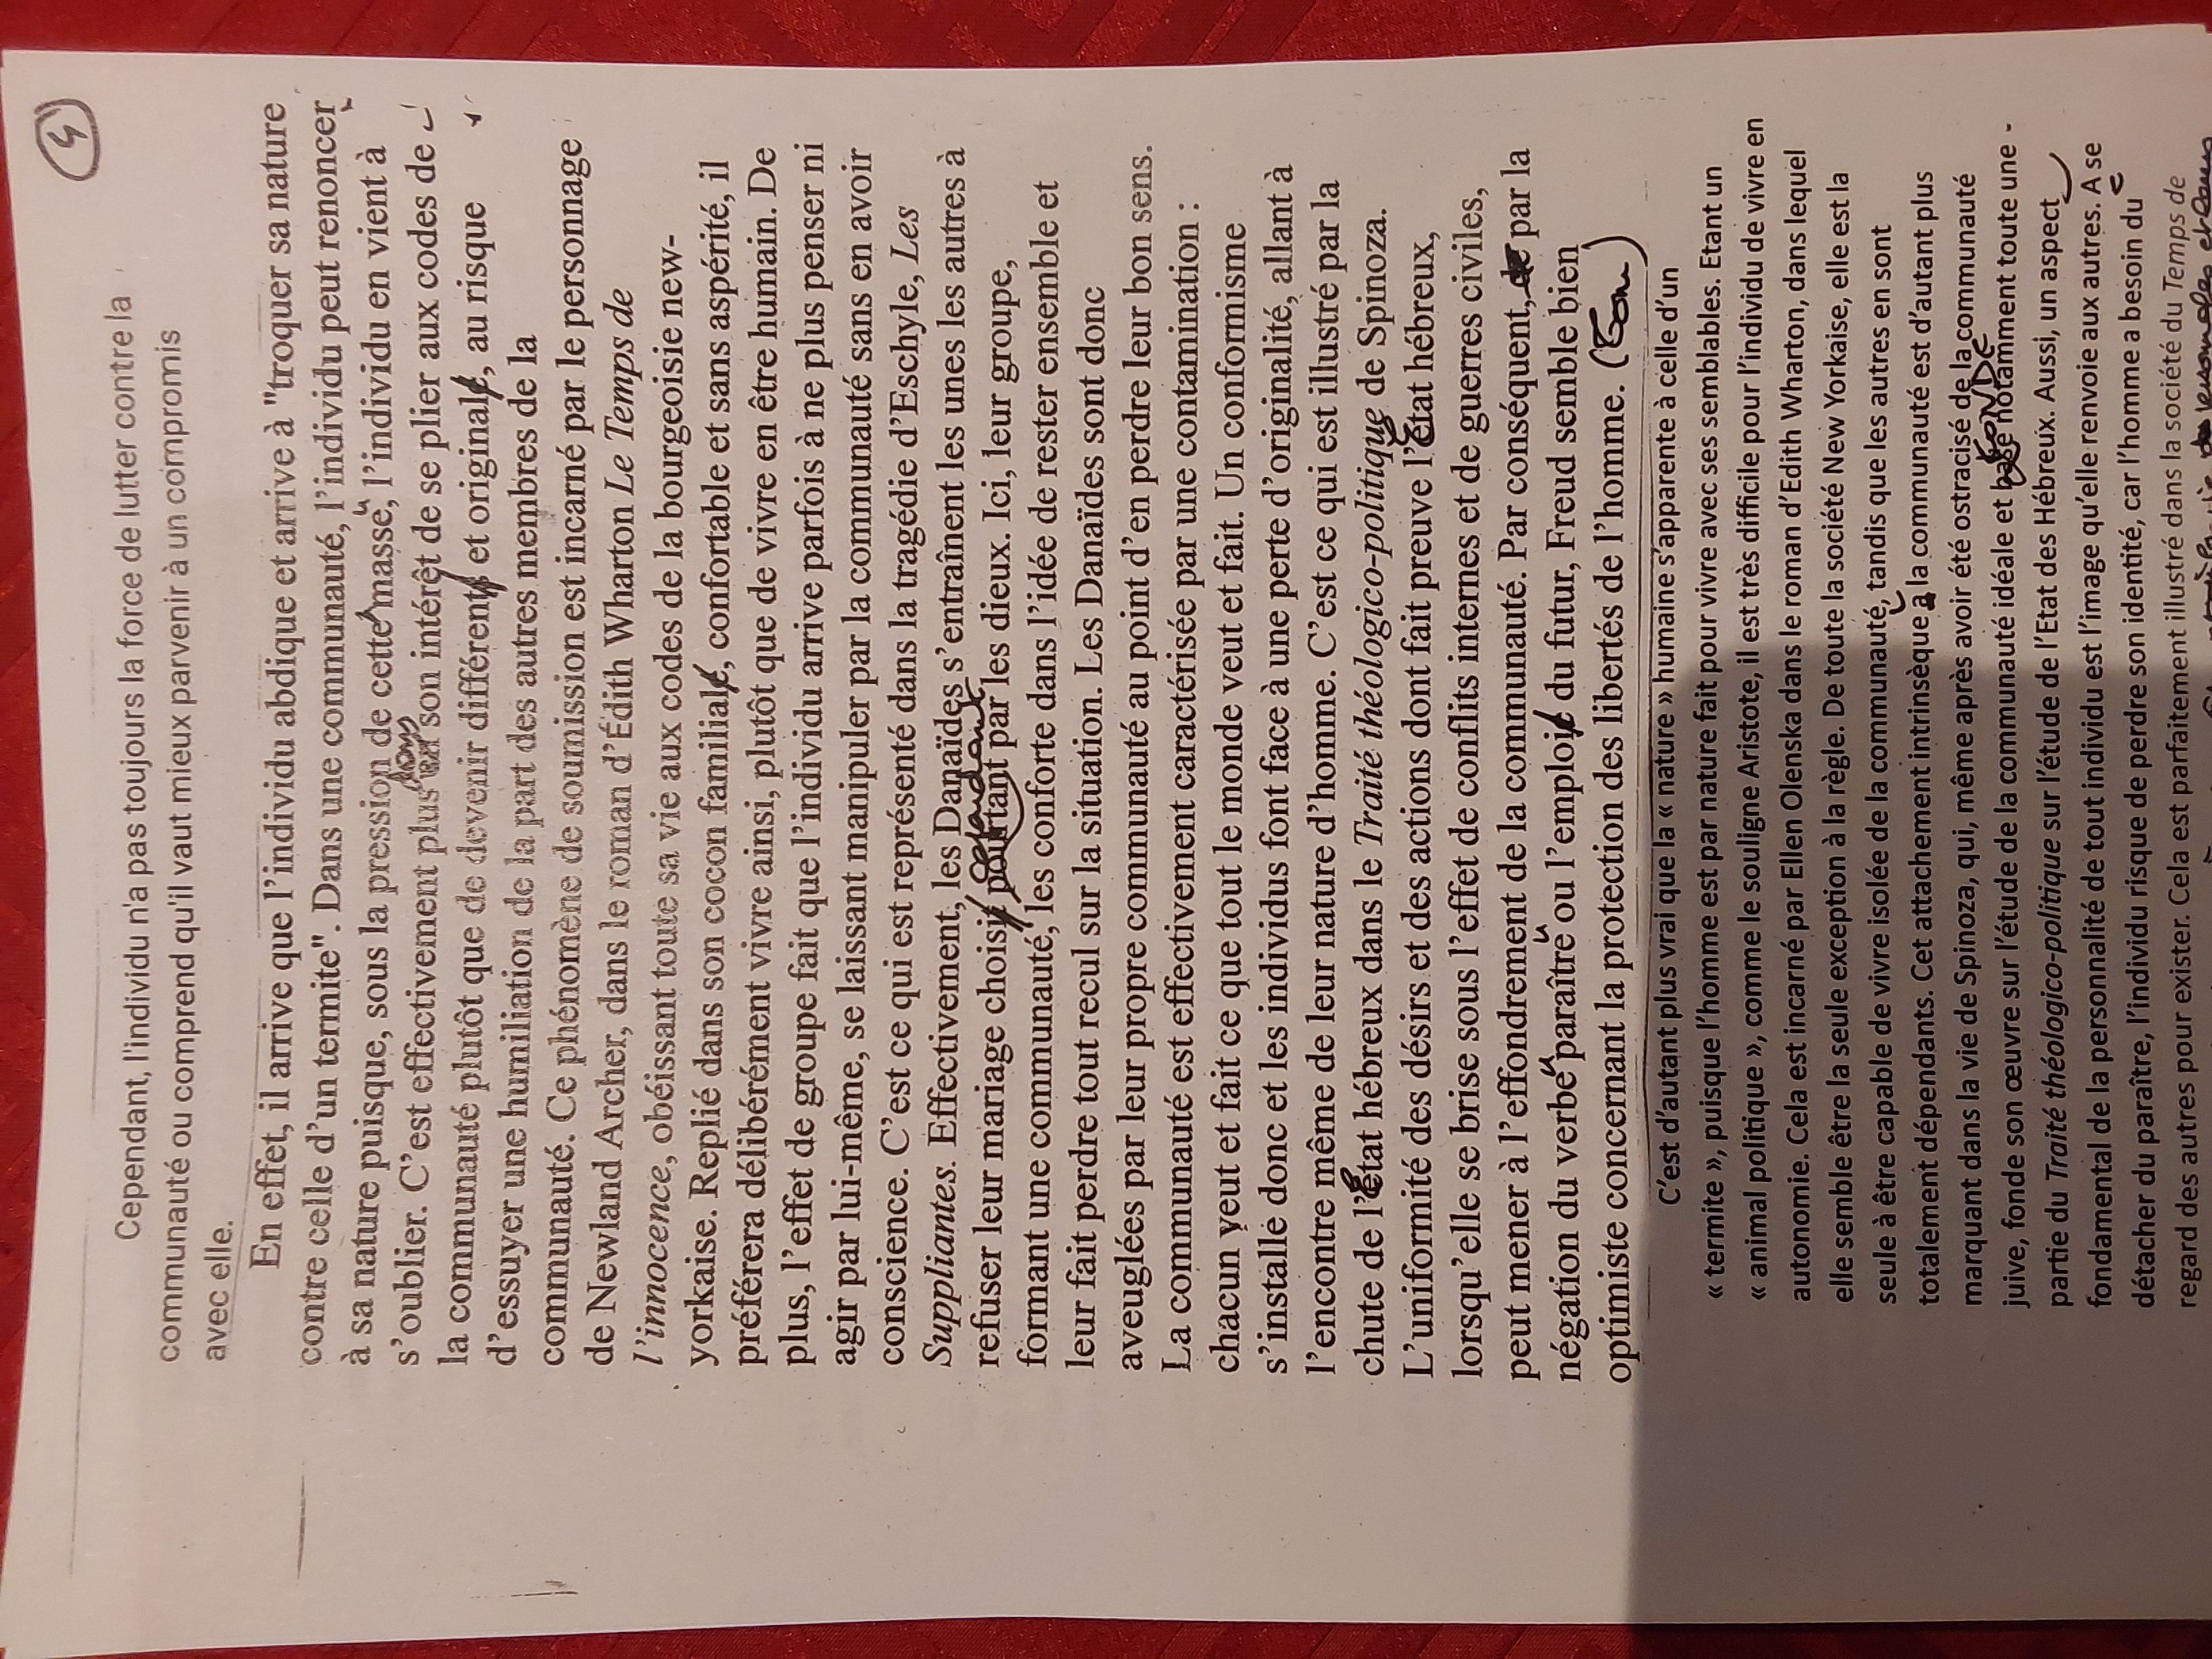 4
Cependant, l'individu n'a pas toujours la force de lutter contre la
communauté ou comprend qu'il vaut mieux parvenir à un compromis
avec elle.
En effet, il arrive que l'individu abdique et arrive à "troquer sa nature
contre celle d'un termite". Dans une communauté, l'individu peut renoncer
à sa nature puisque, sous la pression de cette masse, l'individu en vient à
s'oublier. C'est effectivement plus dans son intérêt de se plier aux codes de
la communauté plutôt que de devenir différent et original, au risque
d'essuyer une humiliation de la part des autres membres de la
communauté. Ce phénomène de soumission est incarné par le personnage
de Newland Archer, dans le roman d'Édith Wharton Le Temps de
l'innocence, obéissant toute sa vie aux codes de la bourgeoisie new-
yorkaise. Replié dans son cocon familial, confortable et sans aspérité, il
préférera délibérément vivre ainsi, plutôt que de vivre en être humain. De
plus, l'effet de groupe fait que l'individu arrive parfois à ne plus penser ni
agir par lui-même, se laissant manipuler par la communauté sans en avoir
conscience. C'est ce qui est représenté dans la tragédie d'Eschyle, Les
Suppliantes. Effectivement, les Danaïdes s'entraînent les unes les autres à
refuser leur mariage choisi pourtant cependant par les dieux. Ici, leur groupe,
formant une communauté, les conforte dans l'idée de rester ensemble et
leur fait perdre tout recul sur la situation. Les Danaïdes sont donc
aveuglées par leur propre communauté au point d'en perdre leur bon sens.
La communauté est effectivement caractérisée par une contamination :
chacun veut et fait ce que tout le monde veut et fait. Un conformisme
s'installe donc et les individus font face à une perte d'originalité, allant à
l'encontre même de leur nature d'homme. C'est ce qui est illustré par la
chute de l'État hébreux dans le Traité théologico-politique de Spinoza.
L'uniformité des désirs et des actions dont fait preuve l'État hébreux,
lorsqu'elle se brise sous l'effet de conflits internes et de guerres civiles,
peut mener à l'effondrement de la communauté. Par conséquent, par la
négation du verbe paraître ou l'emploi du futur, Freud semble bien
optimiste concernant la protection des libertés de l'homme.
C'est d'autant plus vrai que la « nature » humaine s'apparente à celle d'un
« termite », puisque l'homme est par nature fait pour vivre avec ses semblables. Etant un
« animal politique », comme le souligne Aristote, il est très difficile pour l'individu de vivre en
autonomie. Cela est incarné par Ellen Olenska dans le roman d'Edith Wharton, dans lequel
elle semble être la seule exception à la règle. De toute la société New Yorkaise, elle est la
seule à être capable de vivre isolée de la communauté, tandis que les autres en sont
totalement dépendants. Cet attachement intrinsèque à la communauté est d'autant plus
marquant dans la vie de Spinoza, qui, même après avoir été ostracisé de la communauté
juive, fonde son œuvre sur l'étude de la communauté idéale et fonde notamment toute une
partie du Traité théologico-politique sur l'étude de l'Etat des Hébreux. Aussi, un aspect
fondamental de la personnalité de tout individu est l'image qu'elle renvoie aux autres. A se
détacher du paraître, l'individu risque de perdre son identité, car l'homme a besoin du
regard des autres pour exister. Cela est parfaitement illustré dans la société du Temps de